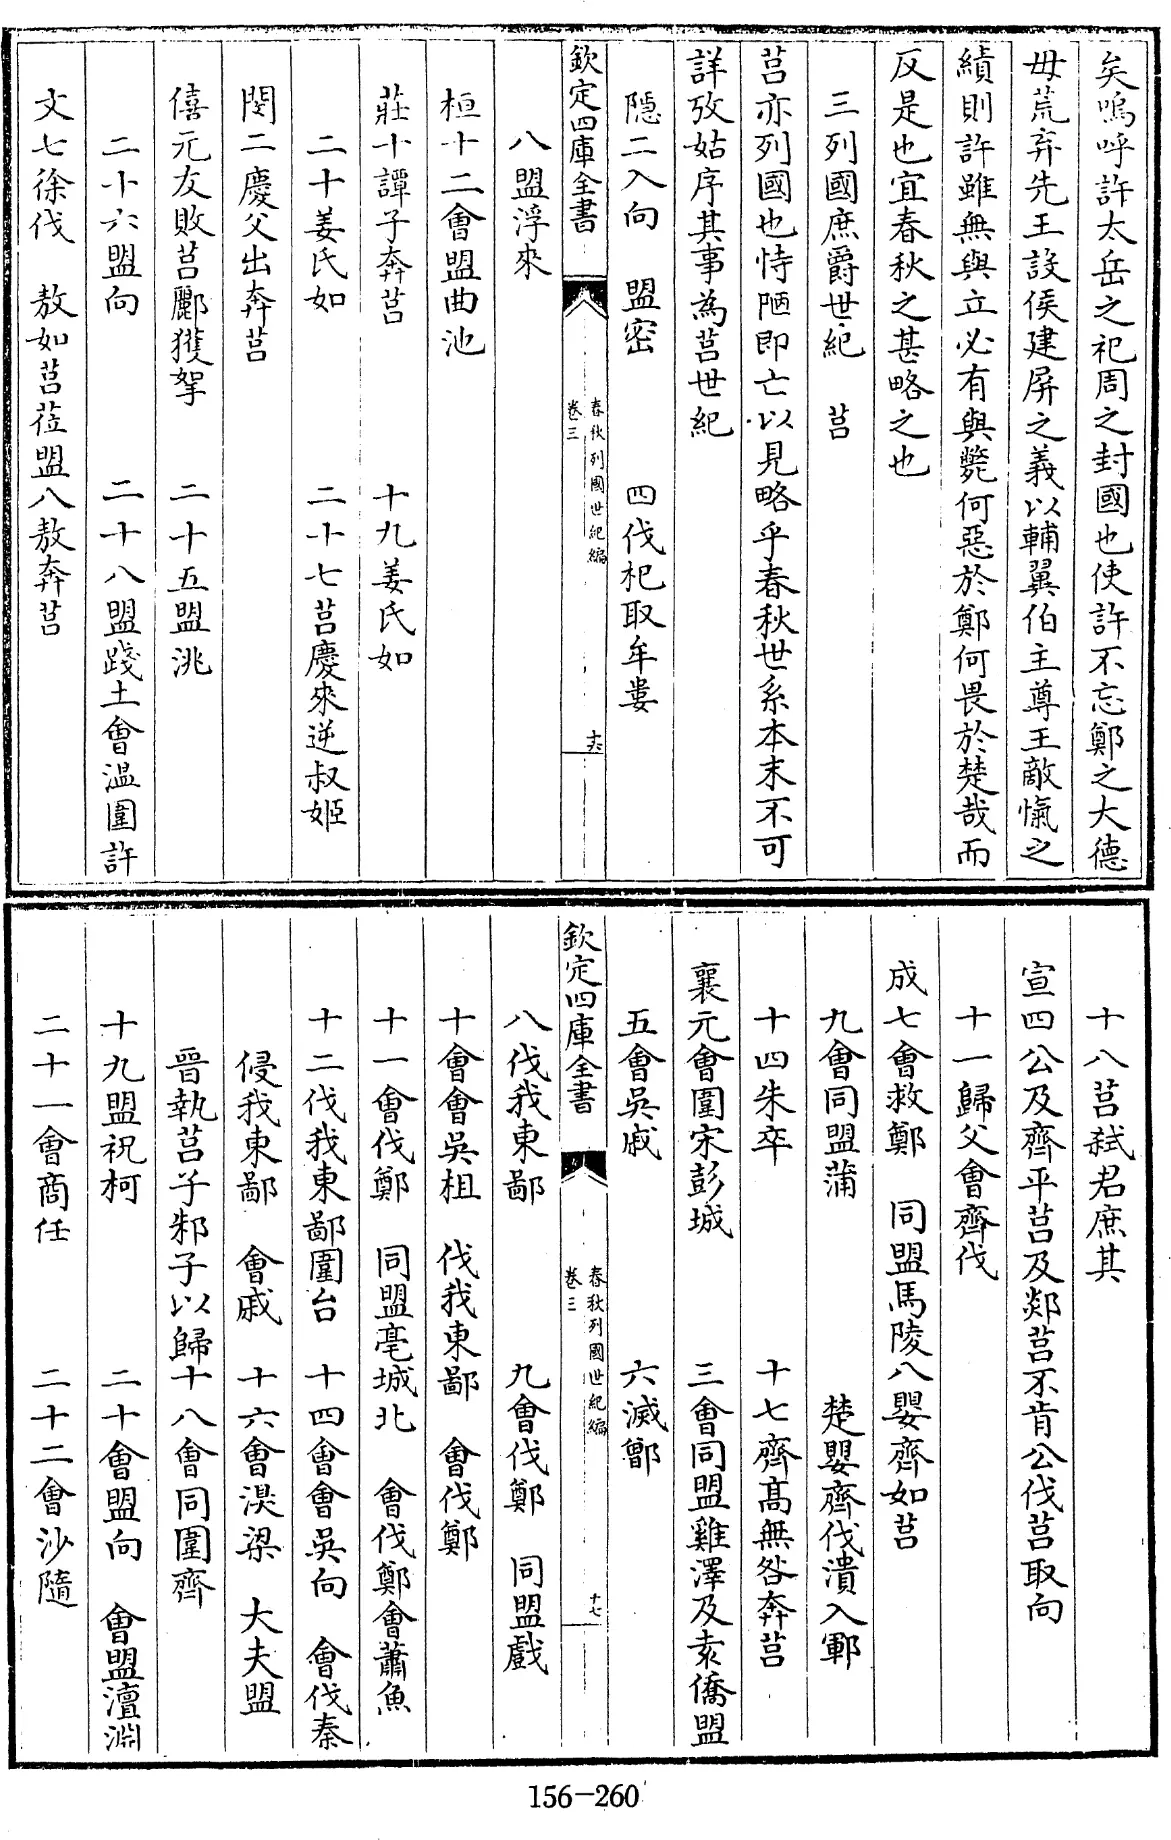 矣嗚呼許太岳之祀周之封國也使許不忘鄭之大德
毋荒弃先王設侯建屏之義以輔翼伯主尊王敵愾之
績則許雖無與立必有與斃何惡於鄭何畏於楚哉而
反是也宜春秋之甚略之也
三列國庶爵世紀 莒
莒亦列國也恃陋即亡以見略乎春秋世系本末不可
詳攷姑序其事為莒世紀
隱二入向 盟密 四伐杞取牟婁
欽定四庫全書 春秋列國世紀編 卷三 十六
八盟浮來
桓十二會盟曲池
莊十譚子奔莒 十九姜氏如
二十姜氏如 二十七莒慶來逆叔姬
閔二慶父出奔莒
僖元友敗莒酈獲挐 二十五盟洮
二十六盟向 二十八盟踐土會溫圍許
文七徐伐 敖如莒莅盟八敖奔莒
十八莒弒君庶其
宣四公及齊平莒及郯莒不肯公伐莒取向
十一歸父會齊伐
成七會救鄭 同盟馬陵八嬰齊如莒
九會同盟蒲 楚嬰齊伐潰入鄆
十四朱卒 十七齊髙無咎奔莒
襄元會圍宋彭城 三會同盟雞澤及袁僑盟
五會吳戚 六滅鄫
欽定四庫全書 春秋列國世紀編 卷三 十七
八伐我東鄙 九會伐鄭 同盟戲
十會會吳柤 伐我東鄙 會伐鄭
十一會伐鄭 同盟亳城北 會伐鄭會蕭魚
十二伐我東鄙圍台 十四會會吳向 會伐秦
侵我東鄙 會戚 十六會湨梁 大夫盟
晉執莒子邾子以歸十八會同圍齊
十九盟祝柯 二十會盟向 會盟澶淵
二十一會商任 二十二會沙隨
156-260